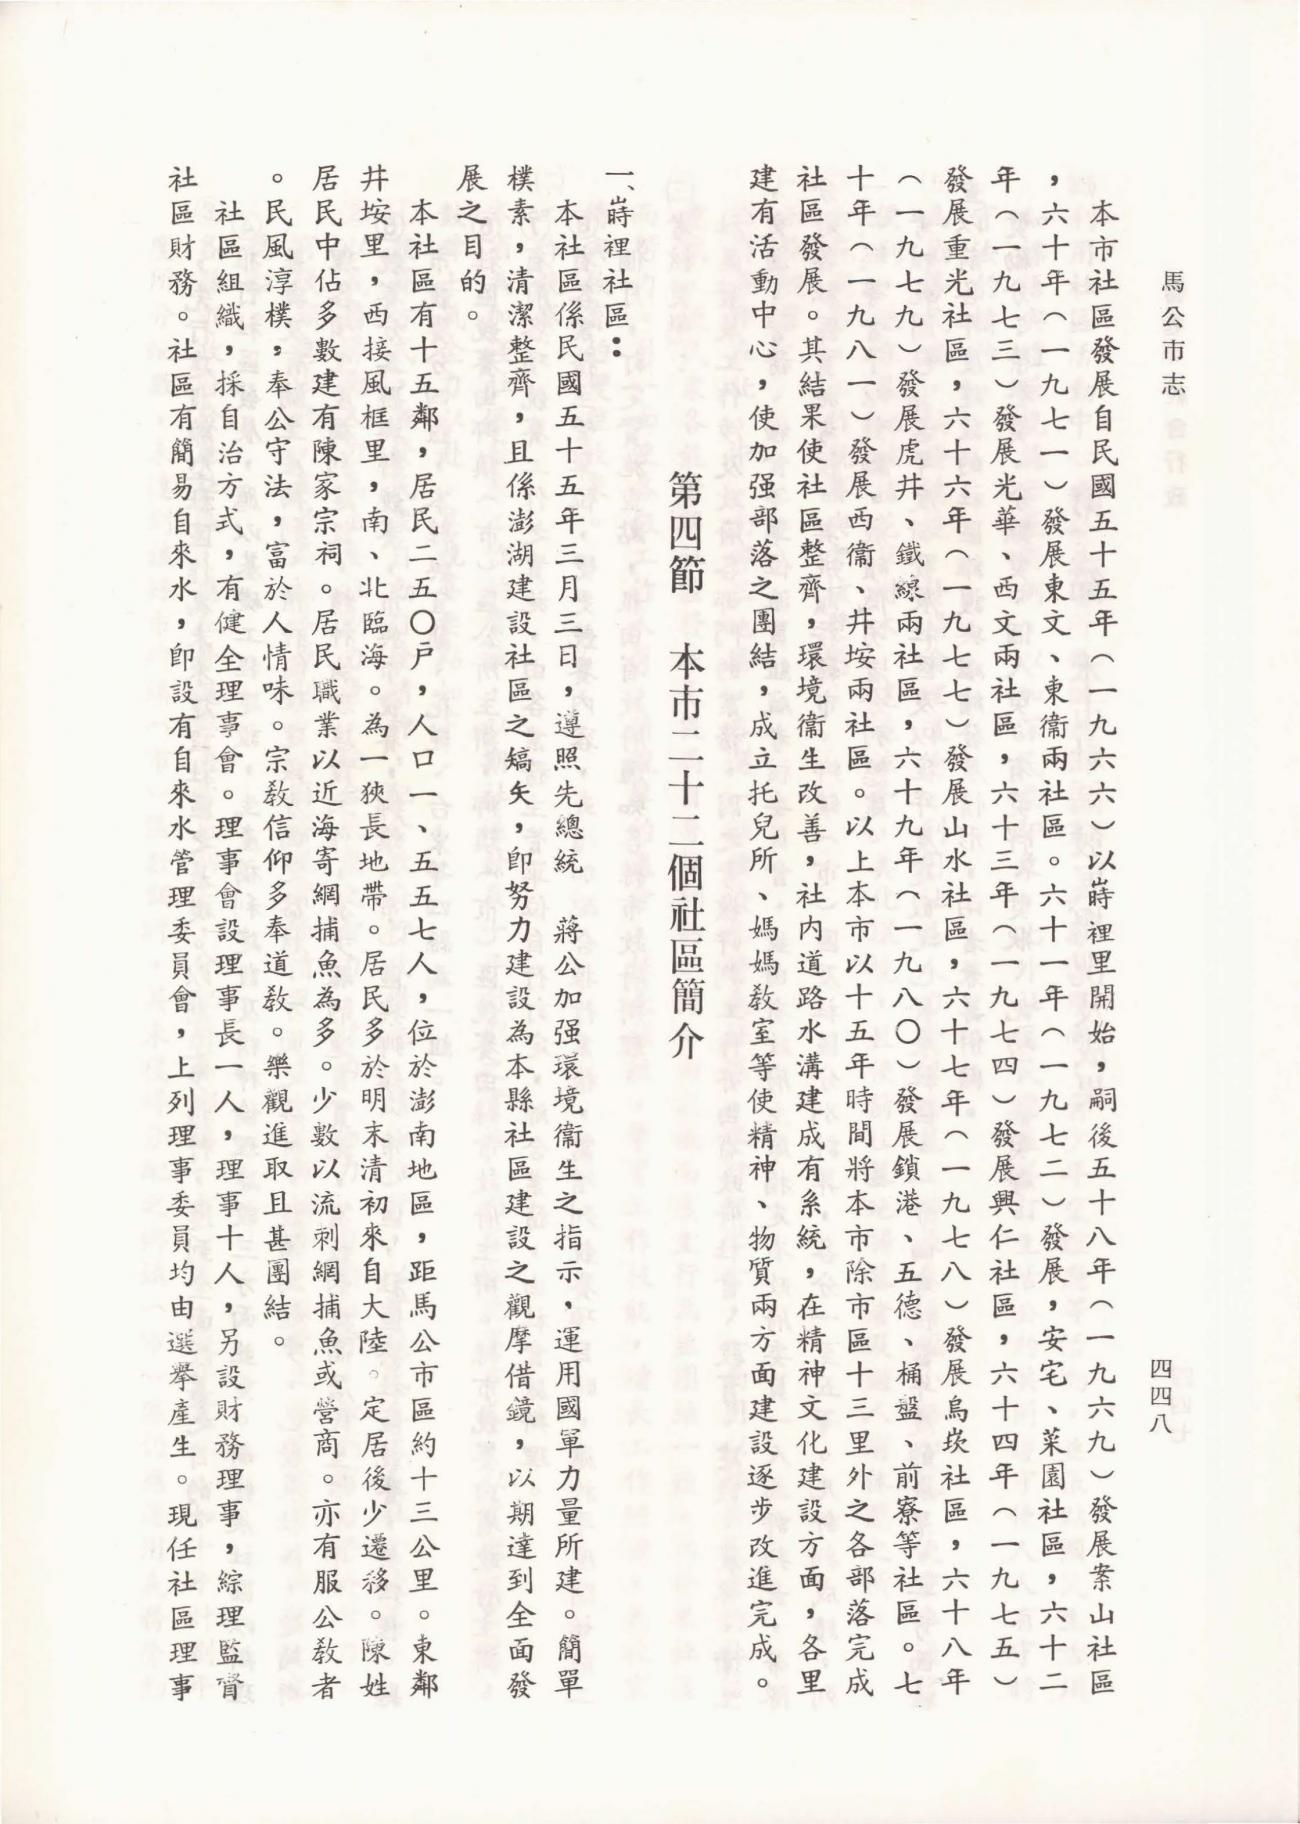 馬公市志
四四八
本市社區發展自民國五十五年（一九六六）以嵵裡里開始，嗣後五十八年（一九六九）發展案山社區
，六十年（一九七一）發展東文、東衞兩社區。六十一年（一九七二）發展，安宅、菜園社區，六十二
年（一九七三）發展光華、西文兩社區，六十三年（一九七四）發展興仁社區，六十四年（一九七五）
發展重光社區，六十六年（一九七七）發展山水社區，六十七年（一九七八）發展烏崁社區，六十八年
（一九七九）發展虎井、鐵線兩社區，六十九年（一九八〇）發展鎖港、五德、桶盤、前寮等社區。七
十年（一九八一）發展西衞、井垵兩社區。以上本市以十五年時間將本市除市區十三里外之各部落完成
社區發展。其結果使社區整齊，環境衞生改善，社內道路水溝建成有系統，在精神文化建設方面，各里
建有活動中心，使加强部落之團結，成立托兒所、媽媽教室等使精神、物質兩方面建設逐步改進完成。
第四節　本市二十二個社區簡介
一、嵵裡社區：
本社區係民國五十五年三月三日，遵照先總統　蔣公加强環境衞生之指示，運用國軍力量所建。簡單
樸素，清潔整齊，且係澎湖建設社區之嚆矢，卽努力建設為本縣社區建設之觀摩借鏡，以期達到全面發
展之目的。
本社區有十五鄰，居民二五〇戶，人口一、五五七人，位於澎南地區，距馬公市區約十三公里。東鄰
井垵里，西接風框里，南、北臨海。為一狹長地帶。居民多於明末清初來自大陸。定居後少遷移。陳姓
居民中佔多數建有陳家宗祠。居民職業以近海寄網捕魚為多。少數以流刺網捕魚或營商。亦有服公教者
。民風淳樸，奉公守法，富於人情味。宗教信仰多奉道教。樂觀進取且甚團結。
社區組織，採自治方式，有健全理事會。理事會設理事長一人，理事十人，另設財務理事，綜理監督
社區財務。社區有簡易自來水，卽設有自來水管理委員會，上列理事委員均由選舉產生。現任社區理事